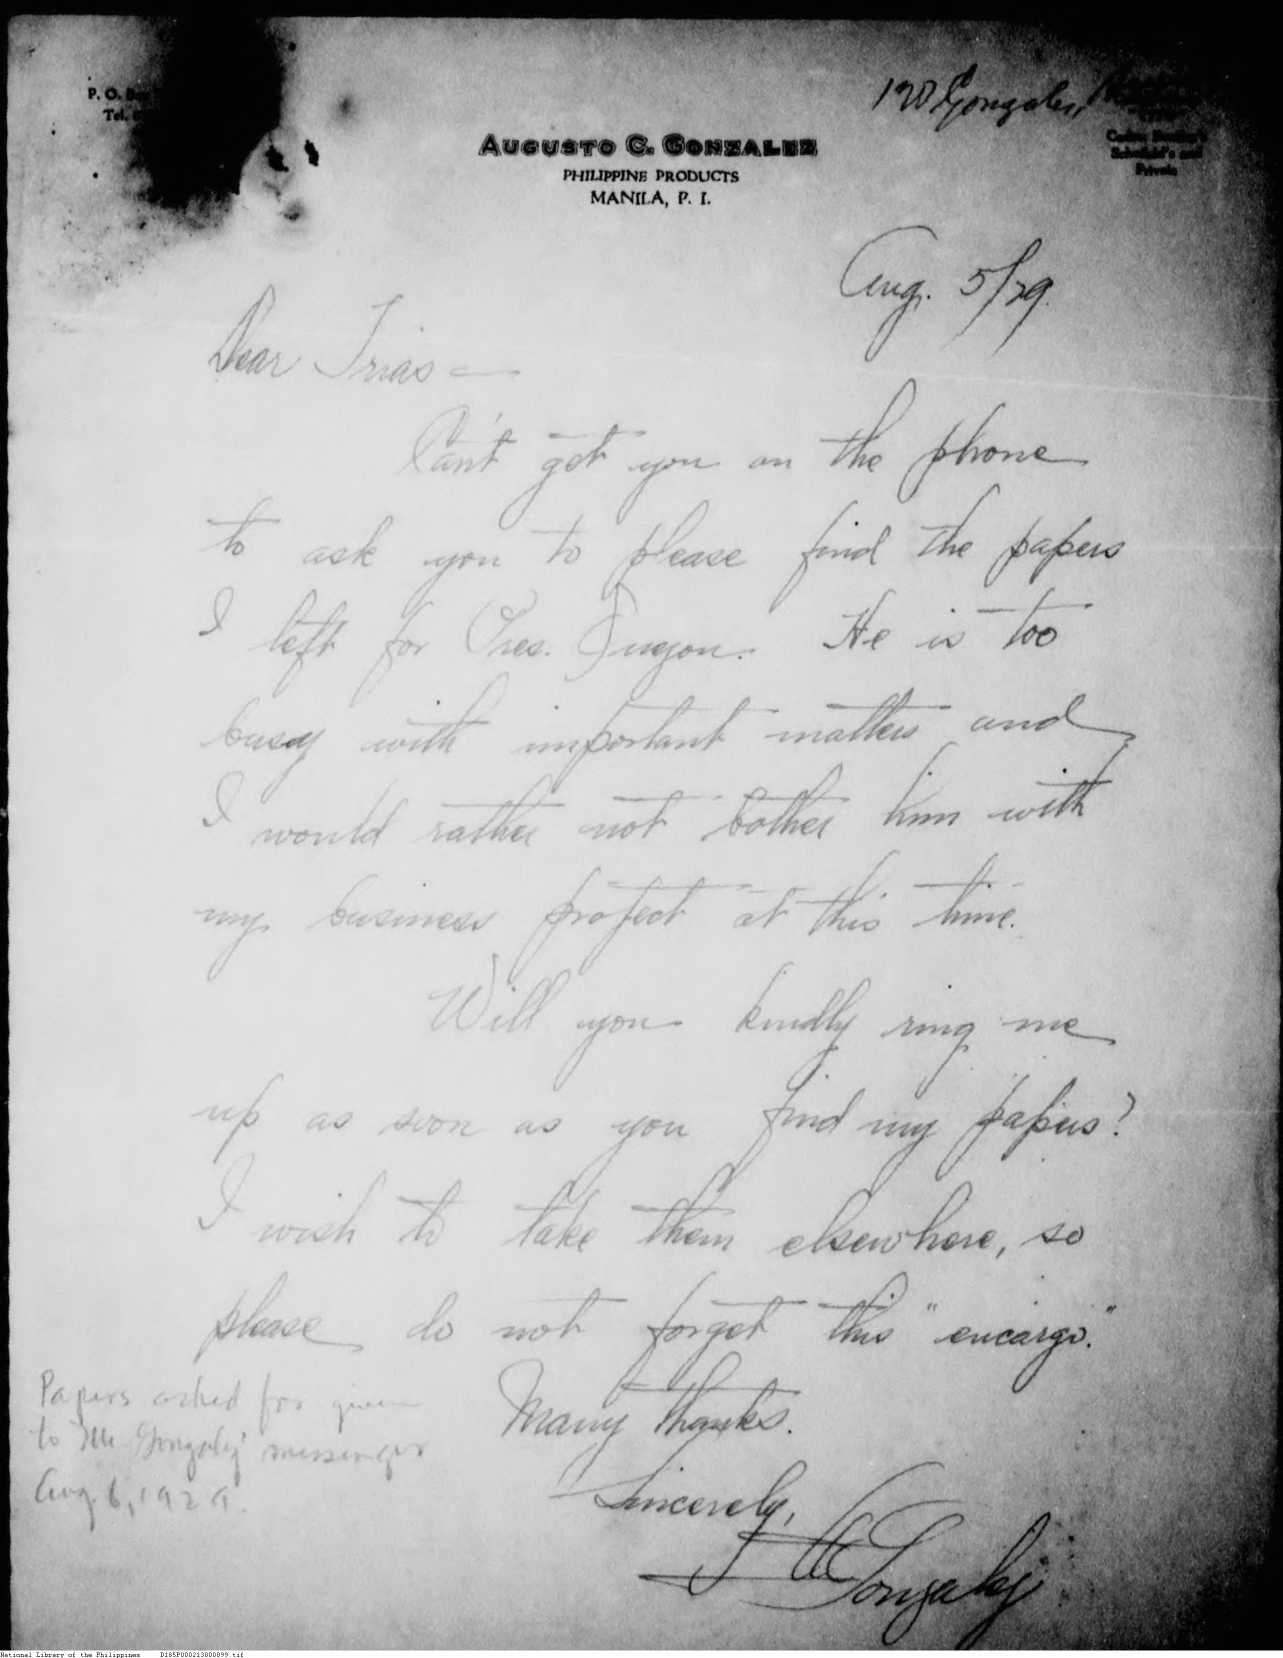 P. O. Box
Tel.
Gonzalez,
AUGUSTO C. GONZALEZ
PHILIPPINE PRODUCTS
MANILA, P. I.
Codes: Bentley's
Schofield's and
Private
Aug. 5/29.
Dear Trias —
Can't get you on the phone
to ask you to please find the papers
I left for Pres. Quezon. He is too
busy with important matters and
I would rather not bother him with
my business project at this time.
Will you kindly ring me
up as soon as you find my papers?
I wish to take them elsewhere, so
please do not forget this "encargo."
Many thanks.
Sincerely,
A C Gonzalez
Papers asked for given
to Mr. Gonzalez' messenger
Aug. 6, 1929.
National Library of the Philippines D185P000213800899.tif